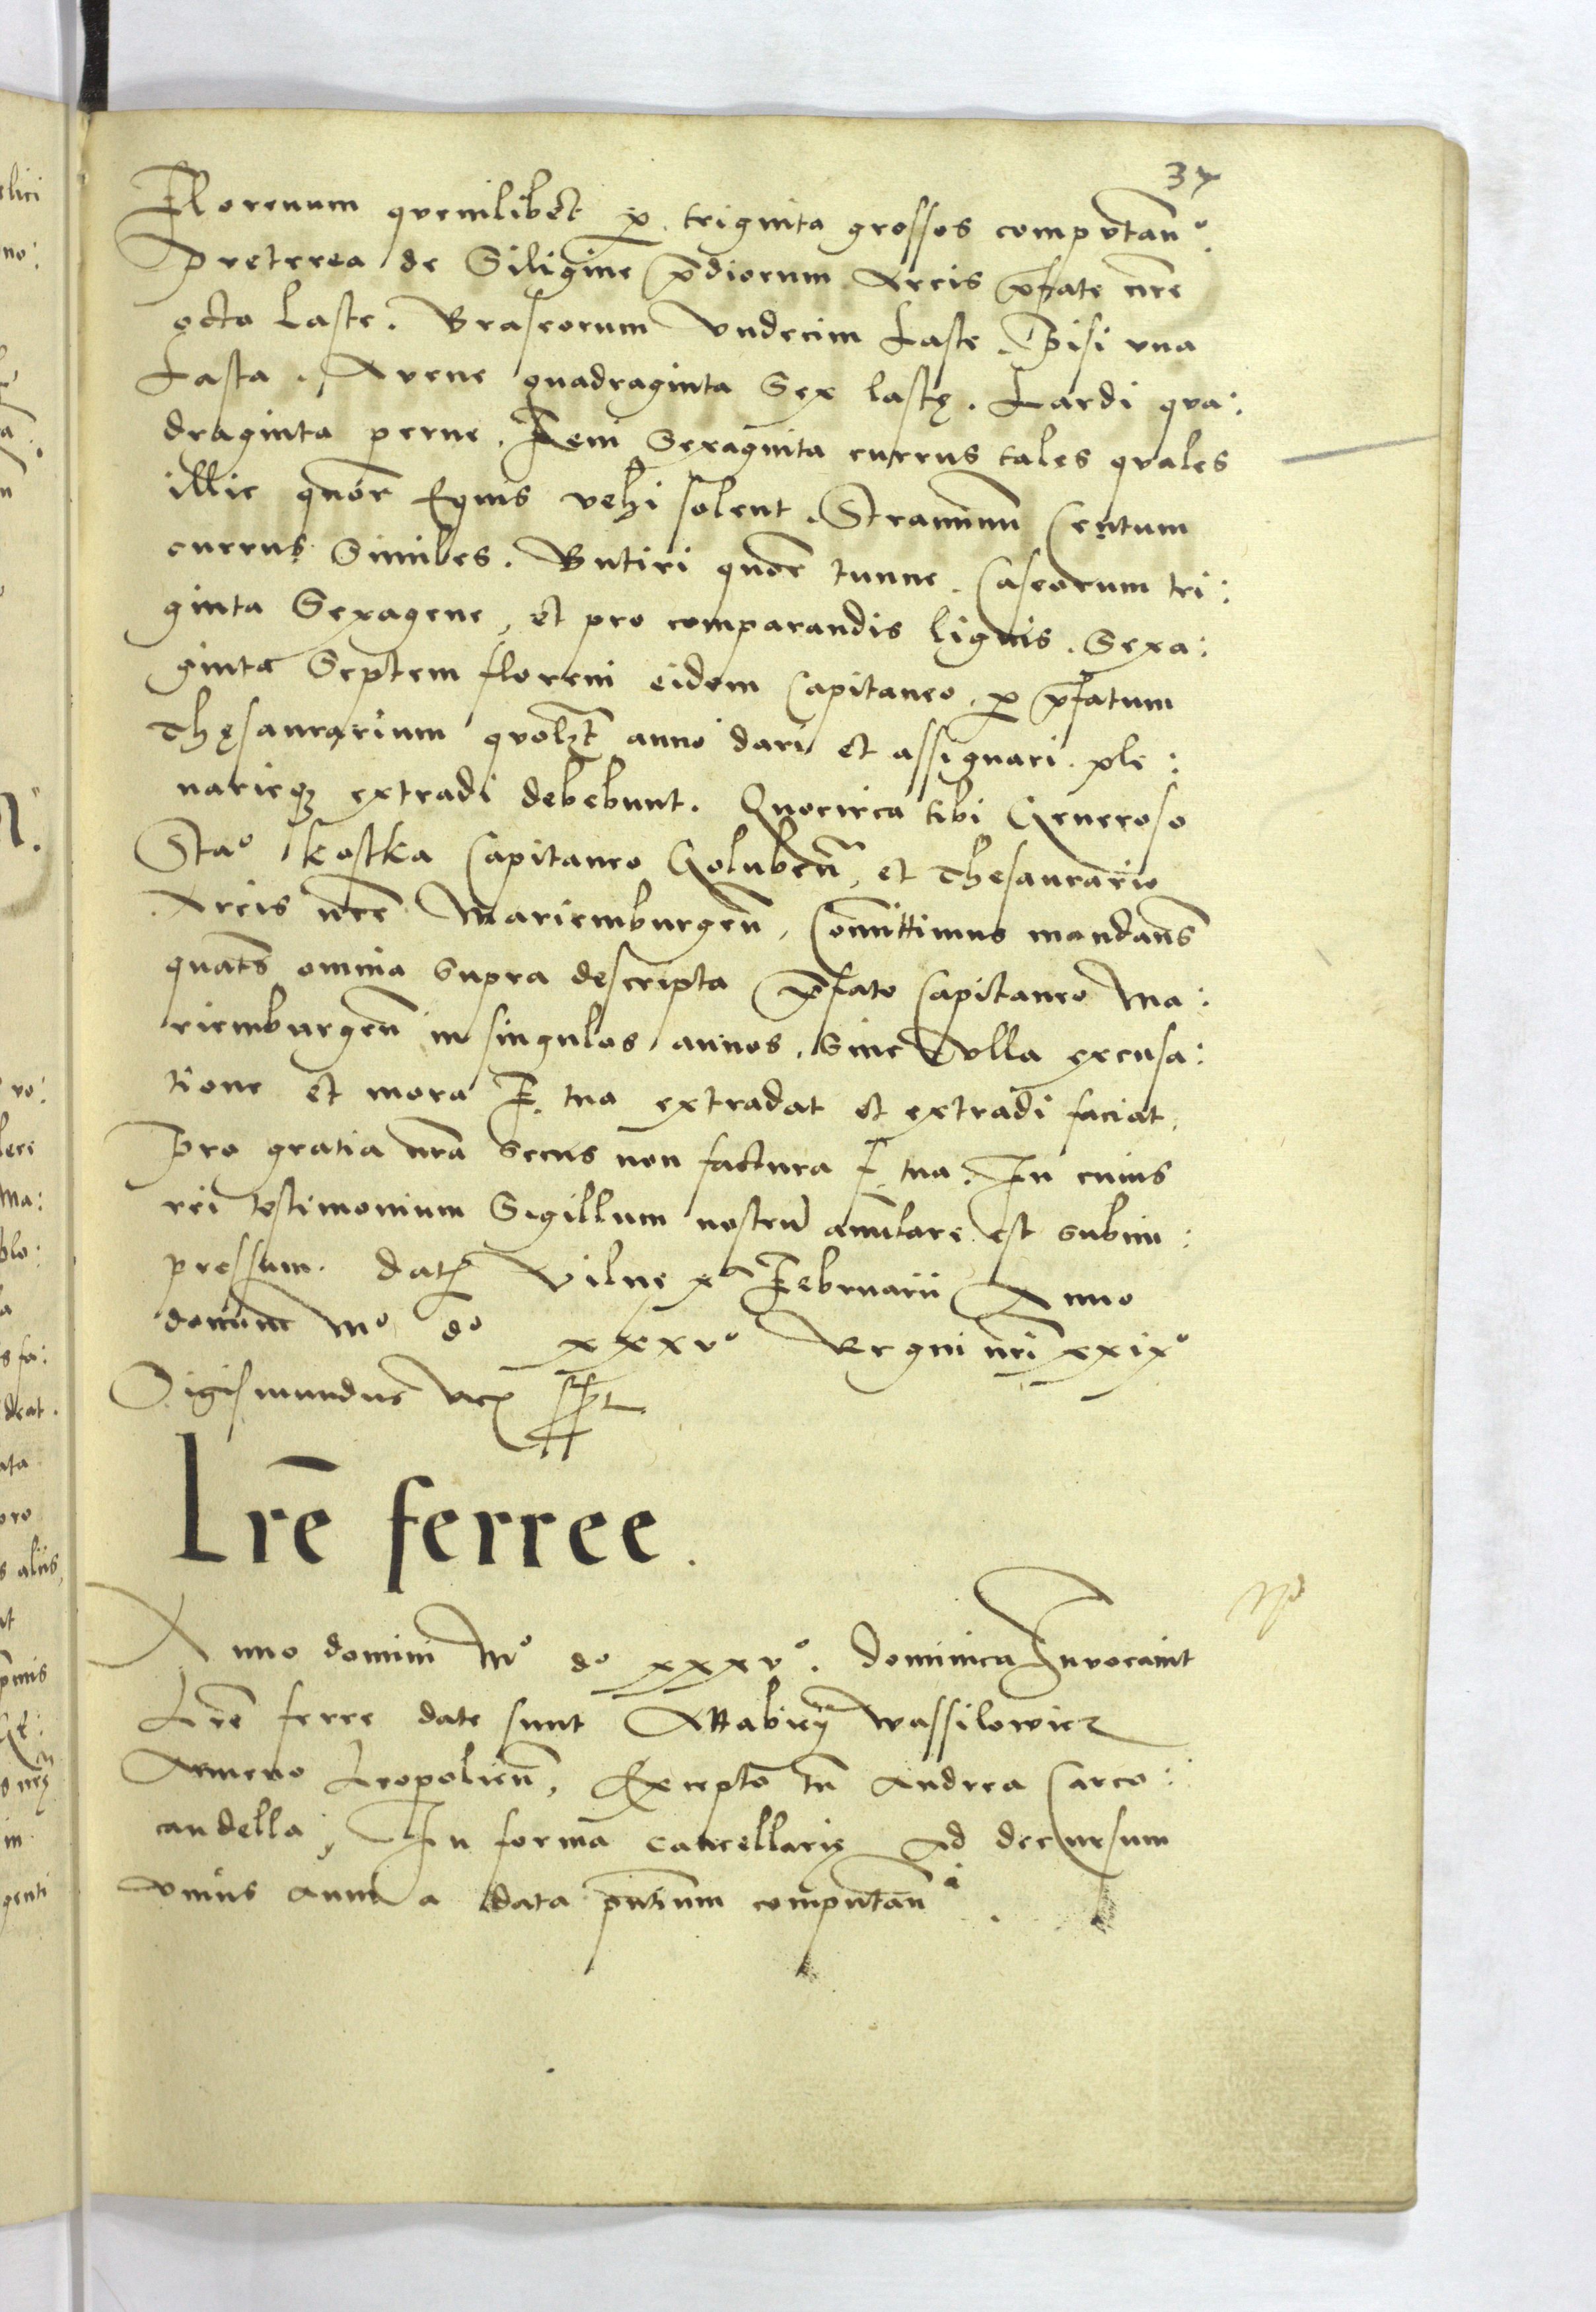 37
Florenum quemlibet p. triginta grossos computan°.
Preterea de Siligine p̄diorum Arcis p̄fate nr̄e
octo Laste. Braseorum vndecim Laste. Pisi vna
Lasta. Avene quadraginta Sex lastę. Lardi qua:
draginta perne. Feni Sexaginta currus tales quales
illic quor̄ Equis vehi solent. Straminū Centum
currus Similes. Butiri quor̄ tunne. Caseorum tri:
ginta Sexagene, et pro comparandis lignis. Sexa:
ginta Septem floreni eidem Capitaneo, p p̄fatum
Thęsaurarium quolzt anno dari et assignari. ple:
narieqz extradi debebunt. Quocirca tibi Generoso
Sta° Kostka Capitaneo Goluben̄, et Thesaurario
Arcis nr̄e Mariemburgen̄, Com̄ittimus mandan̄s
quatn̄s omnia supra descripta p̄fato Capitaneo Ma:
riemburgen̄ in singulos annos, sine vlla excusa:
tione et mora F. tua extradat et extradi faciat,
Pro gratia nr̄a secus non factura F. tua. In cuius
rei testimonium Sigillum nostrū anulare est subim:
pressum. Dat Vilne xª Februarii Anno
domini M° d° xxxv° Regni nr̄i xxix°
Sigismundus Rex sspt
Lr̄e ferree.
Anno domini M° d° xxxv°. Dominica Invocauit
Lr̄e ferre date sunt Attabieÿ Wassilowicz
Armeno Leopolien̄, Excepto tn̄ Andrea Carco:
candella, In forma cancellarię Ad decursum
vnius anni a data pn̄tium computan̄